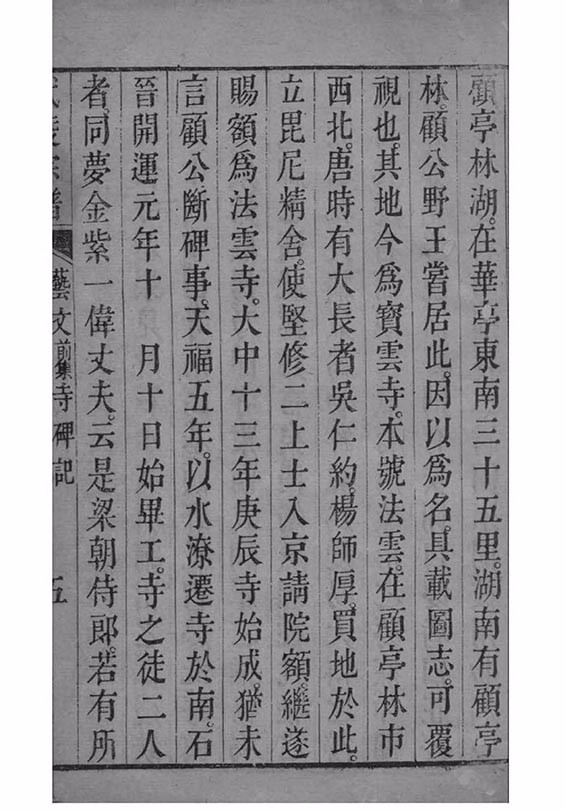 顧亭林湖。在華亭東南三十五里。湖南有顧亭
林。顧公野王嘗居此。因以爲名。具載圖志。可覆
視也。其地今爲寳雲寺。本號法雲。在顧亭林市
西北。唐時有大長者吳仁約。楊師厚。買地於此。
立毘尼精舍。使堅修二上士入京請院額。繼遂
賜額爲法雲寺。大中十三年庚辰寺始成。猶未
言顧公斷碑事。天福五年。以水潦遷寺於南。石
晉開運元年十　月十日始畢工。寺之徒二人
者。同夢金紫一偉丈夫。云是梁朝侍郎。若有所
藝文前集寺碑記　五